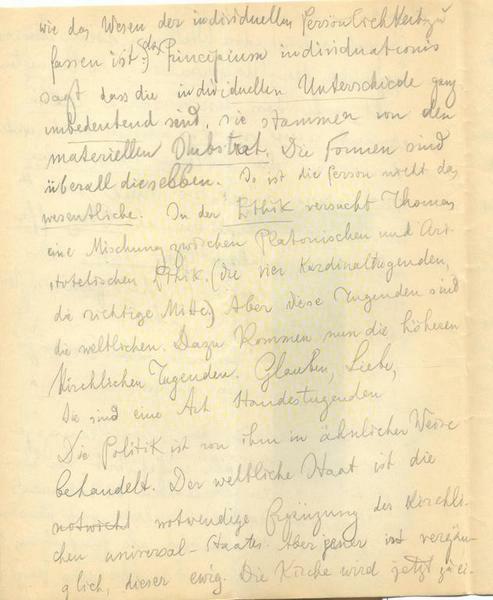 wie das Wesen der individuellen Persönlichkeit zu
fassen ist: das Principium individuationis
sagt dass die individuellen Unterschiede ganz
unbedeutend sind, sie stammen von dem
materiellen Substrat. Die Formen sind
überall dieselben. So ist die Person nicht das
wesentliche. In der Ethik versucht Thomas
eine Mischung zwischen Platonischen und Ari-
stotelischen Ethik. (die vier Kardinaltugenden,
die richtige Mitte) Aber diese Tugenden sind
die weltlichen. Dazu kommen nun die höheren
kirchlichen Tugenden. Glauben, Liebe,
Sie sind eine Art Standestugenden
Die Politik ist von ihm in ähnlicher Weise
behandelt. Der weltliche Staat ist die
notwendige Ergänzung des Kirchli-
chen universal-Staates. Aber jener ist vergän-
glich, dieser ewig. Die Kirche wird jetzt zu ei-